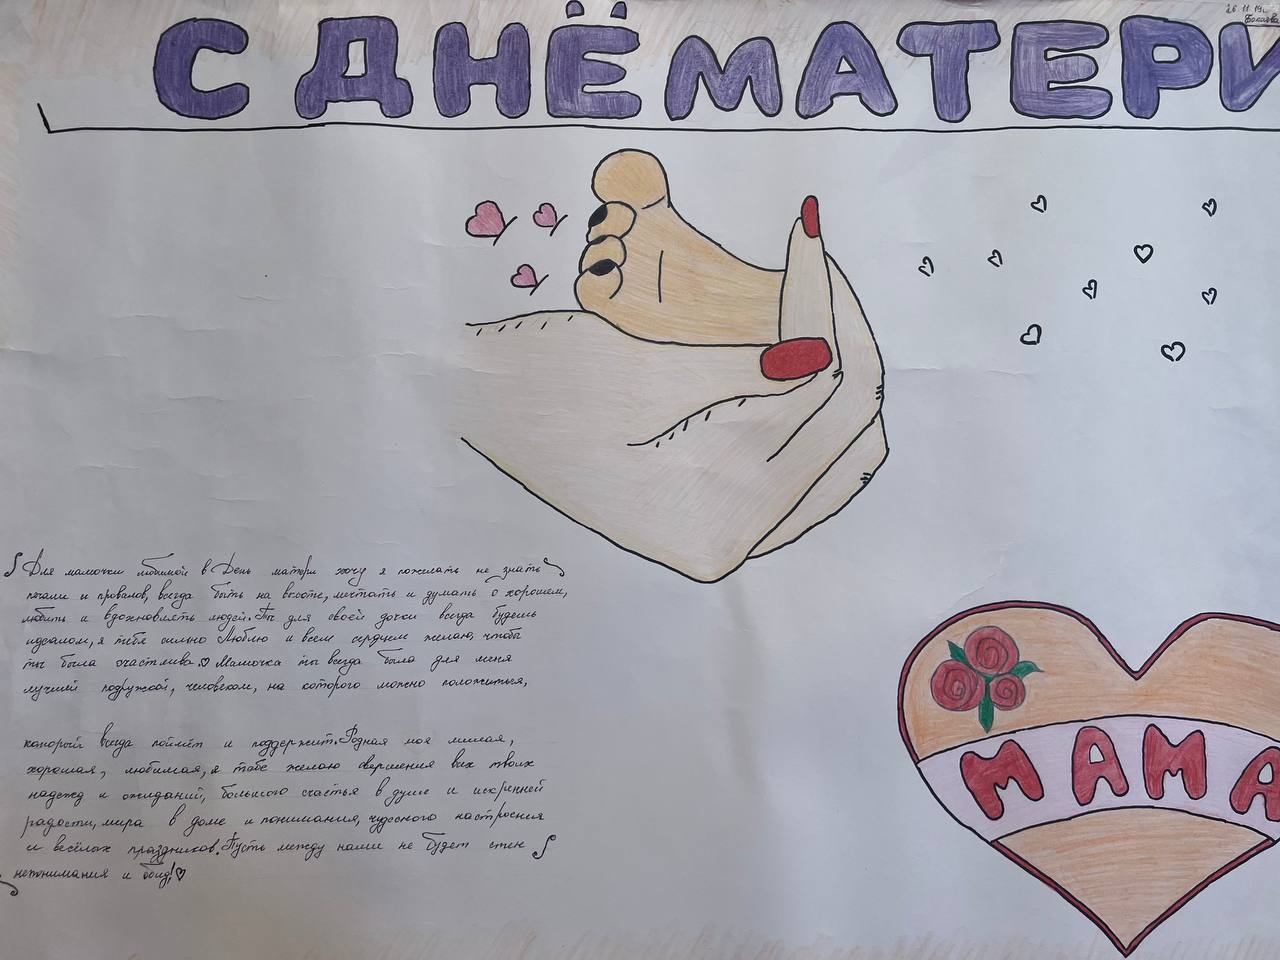 26.11.19г.
С ДНЁМ МАТЕРИ
Для мамочки любимой в День матери хочу я пожелать не знать
печали и провалов, всегда быть на высоте, мечтать и думать о хорошем,
любить и вдохновлять людей. Ты для своей дочки всегда будешь
идеалом, я тебя сильно Люблю и всем сердцем желаю, чтобы
ты была счастлива. Мамочка ты всегда была для меня
лучшей подружкой, человеком, на которого можно положиться,
который всегда поймёт и поддержит. Родная моя милая,
хорошая, любимая, я тебе желаю свершения всех твоих
надежд и ожиданий, большого счастья в душе и искренней
радости, мира в доме и понимания, чудесного настроения
и весёлых праздников. Пусть между нами не будет стен
непонимания и обид!
МАМА